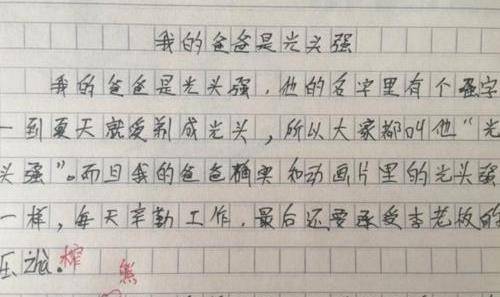 我的爸爸是光头强
我的爸爸是光头强，他的名字里有个强字
一到夏天就爱剃成光头，所以大家都叫他“光
头强”。而且我的爸爸确实和动画片里的光头强
一样，每天辛勤工作，最后还要承受李老板的
压zhà。榨
熊